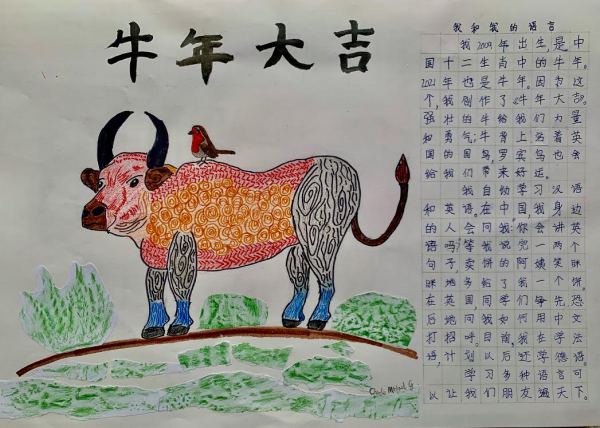 牛年大吉
我和我的语言
我2009年出生,是中
国十二生肖中的牛年。
2021年也是牛年。因为这
个,我创作了《牛年大吉》。
强壮的牛给我们力量
和勇气,牛背上站着英
国的国鸟,罗宾鸟也会
给我们带来好运。
我自幼学习汉语
和英语。在中国,我身边
的人会问我:你会讲英
语吗?等我说完一两个
句子,卖饼的阿姨笑眯
眯地多给了我一个饼。
在英国同学们争先恐
后地问我如何用中文
打招呼。目前,我在学法
语,计划以后还学德语。
学习多种语言可
以让我们朋友遍天下。